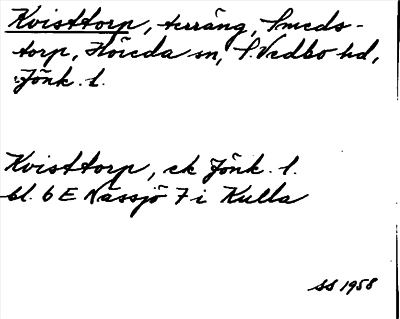 Kvisttorp, terräng, Smeds-
torp, Höreda sn, S. Vedbo hd,
Jönk. l.
Kvisttorp, ek Jönk. l.
bl. 6 E Nässjö 7 i Kulla
SS 1958